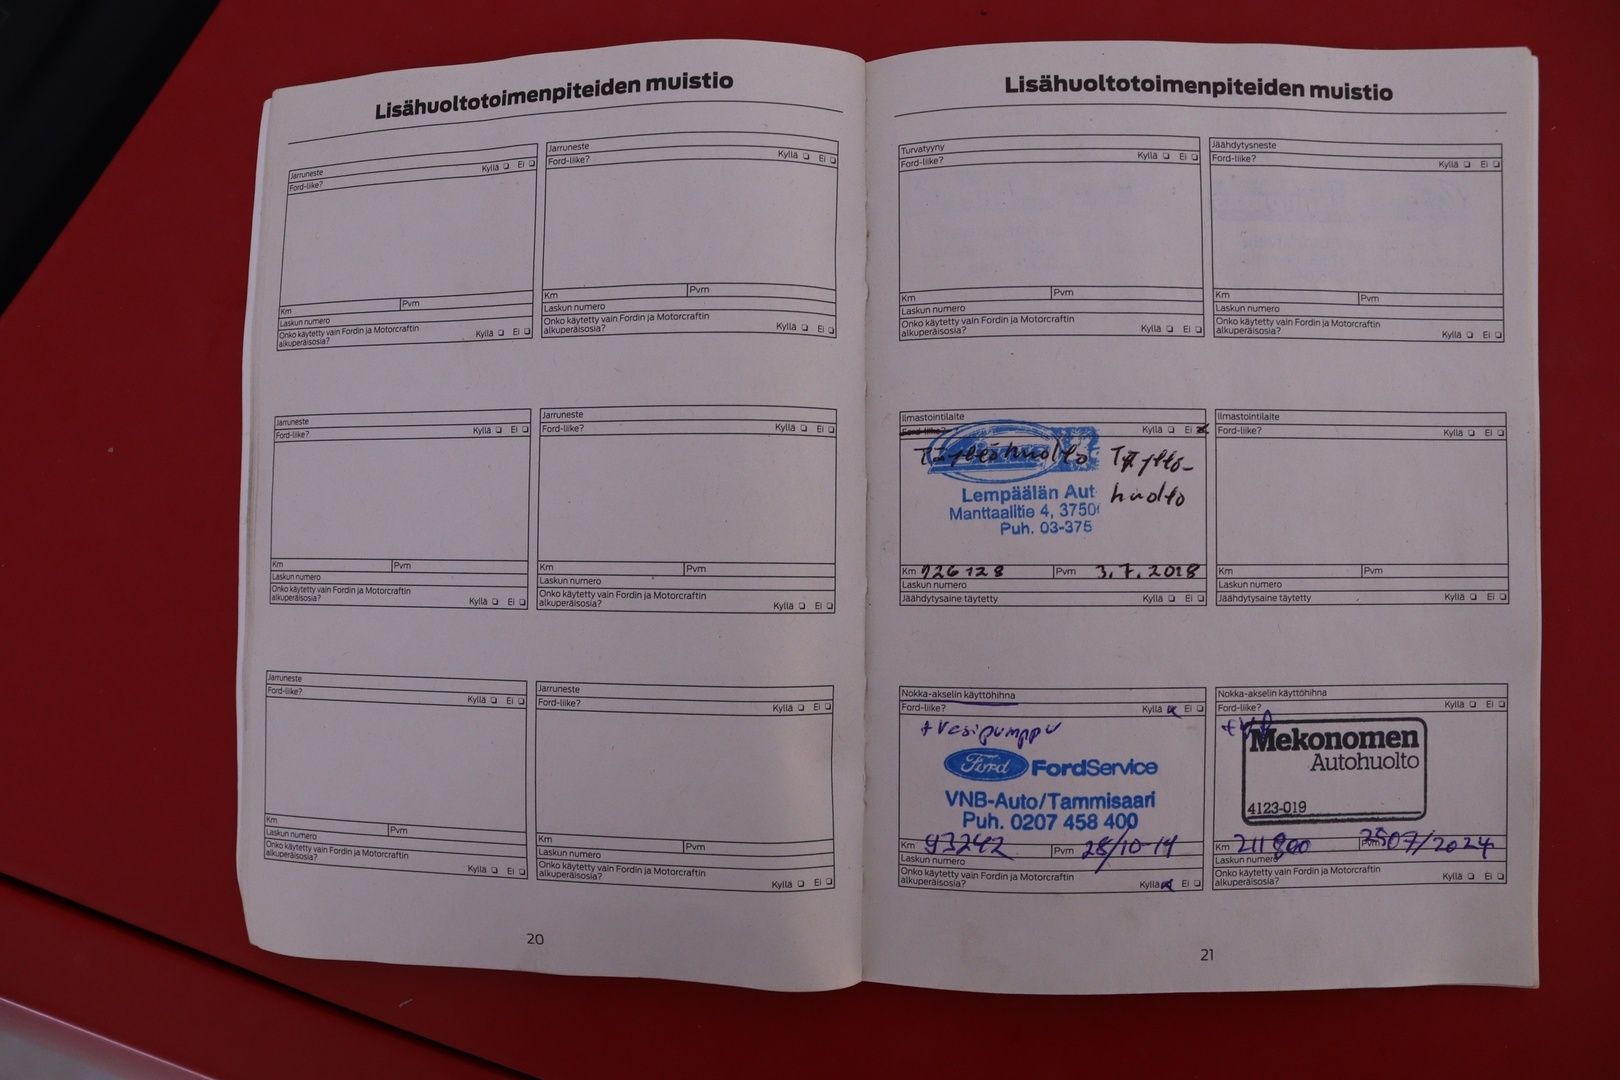 Lisähuoltotoimenpiteiden muistio
Jarruneste
Ford-liike? Kyllä ❏ Ei ❏
Km Pvm
Laskun numero
Onko käytetty vain Fordin ja Motorcraftin
alkuperäisosia? Kyllä ❏ Ei ❏
Jarruneste
Ford-liike? Kyllä ❏ Ei ❏
Km Pvm
Laskun numero
Onko käytetty vain Fordin ja Motorcraftin
alkuperäisosia? Kyllä ❏ Ei ❏
Jarruneste
Ford-liike? Kyllä ❏ Ei ❏
Km Pvm
Laskun numero
Onko käytetty vain Fordin ja Motorcraftin
alkuperäisosia? Kyllä ❏ Ei ❏
Jarruneste
Ford-liike? Kyllä ❏ Ei ❏
Km Pvm
Laskun numero
Onko käytetty vain Fordin ja Motorcraftin
alkuperäisosia? Kyllä ❏ Ei ❏
Jarruneste
Ford-liike? Kyllä ❏ Ei ❏
Km Pvm
Laskun numero
Onko käytetty vain Fordin ja Motorcraftin
alkuperäisosia? Kyllä ❏ Ei ❏
Jarruneste
Ford-liike? Kyllä ❏ Ei ❏
Km Pvm
Laskun numero
Onko käytetty vain Fordin ja Motorcraftin
alkuperäisosia? Kyllä ❏ Ei ❏
20
Lisähuoltotoimenpiteiden muistio
Turvatyyny
Ford-liike? Kyllä ❏ Ei ❏
Km Pvm
Laskun numero
Onko käytetty vain Fordin ja Motorcraftin
alkuperäisosia? Kyllä ❏ Ei ❏
Jäähdytysneste
Ford-liike? Kyllä ❏ Ei ❏
Km Pvm
Laskun numero
Onko käytetty vain Fordin ja Motorcraftin
alkuperäisosia? Kyllä ❏ Ei ❏
Ilmastointilaite
Ford-liike? Kyllä ❏ Ei
Täyttöhuolto
huolto
Lempäälän Aut
Manttaalitie 4, 3750
Puh. 03-375
Km 126 128 Pvm 3.7.2018
Laskun numero
Jäähdytysaine täytetty Kyllä ❏ Ei ❏
Ilmastointilaite
Ford-liike? Kyllä ❏ Ei ❏
Km Pvm
Laskun numero
Jäähdytysaine täytetty Kyllä ❏ Ei ❏
Nokka-akselin käyttöhihna
Ford-liike? Kyllä Ei ❏
+ Vesipumppu
Ford FordService
VNB-Auto/Tammisaari
Puh. 0207 458 400
Km 93242 Pvm 28/10-14
Laskun numero
Onko käytetty vain Fordin ja Motorcraftin
alkuperäisosia? Kyllä Ei ❏
Nokka-akselin käyttöhihna
Ford-liike? Kyllä ❏ Ei ❏
Mekonomen
Autohuolto
4123-019
Km Pvm
Laskun numero
Onko käytetty vain Fordin ja Motorcraftin
alkuperäisosia? Kyllä ❏ Ei ❏
21